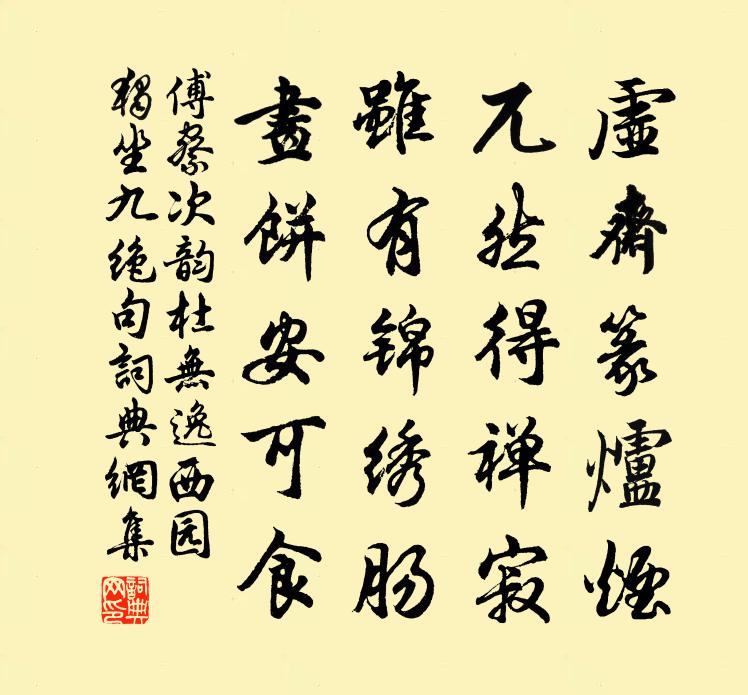 虛齋篆爐煙
兀然得禅寂
雖有锦绣肠
畫餅安可食
傅察次韵杜無逸西园
獨坐九绝句詞典網集
詞典網印